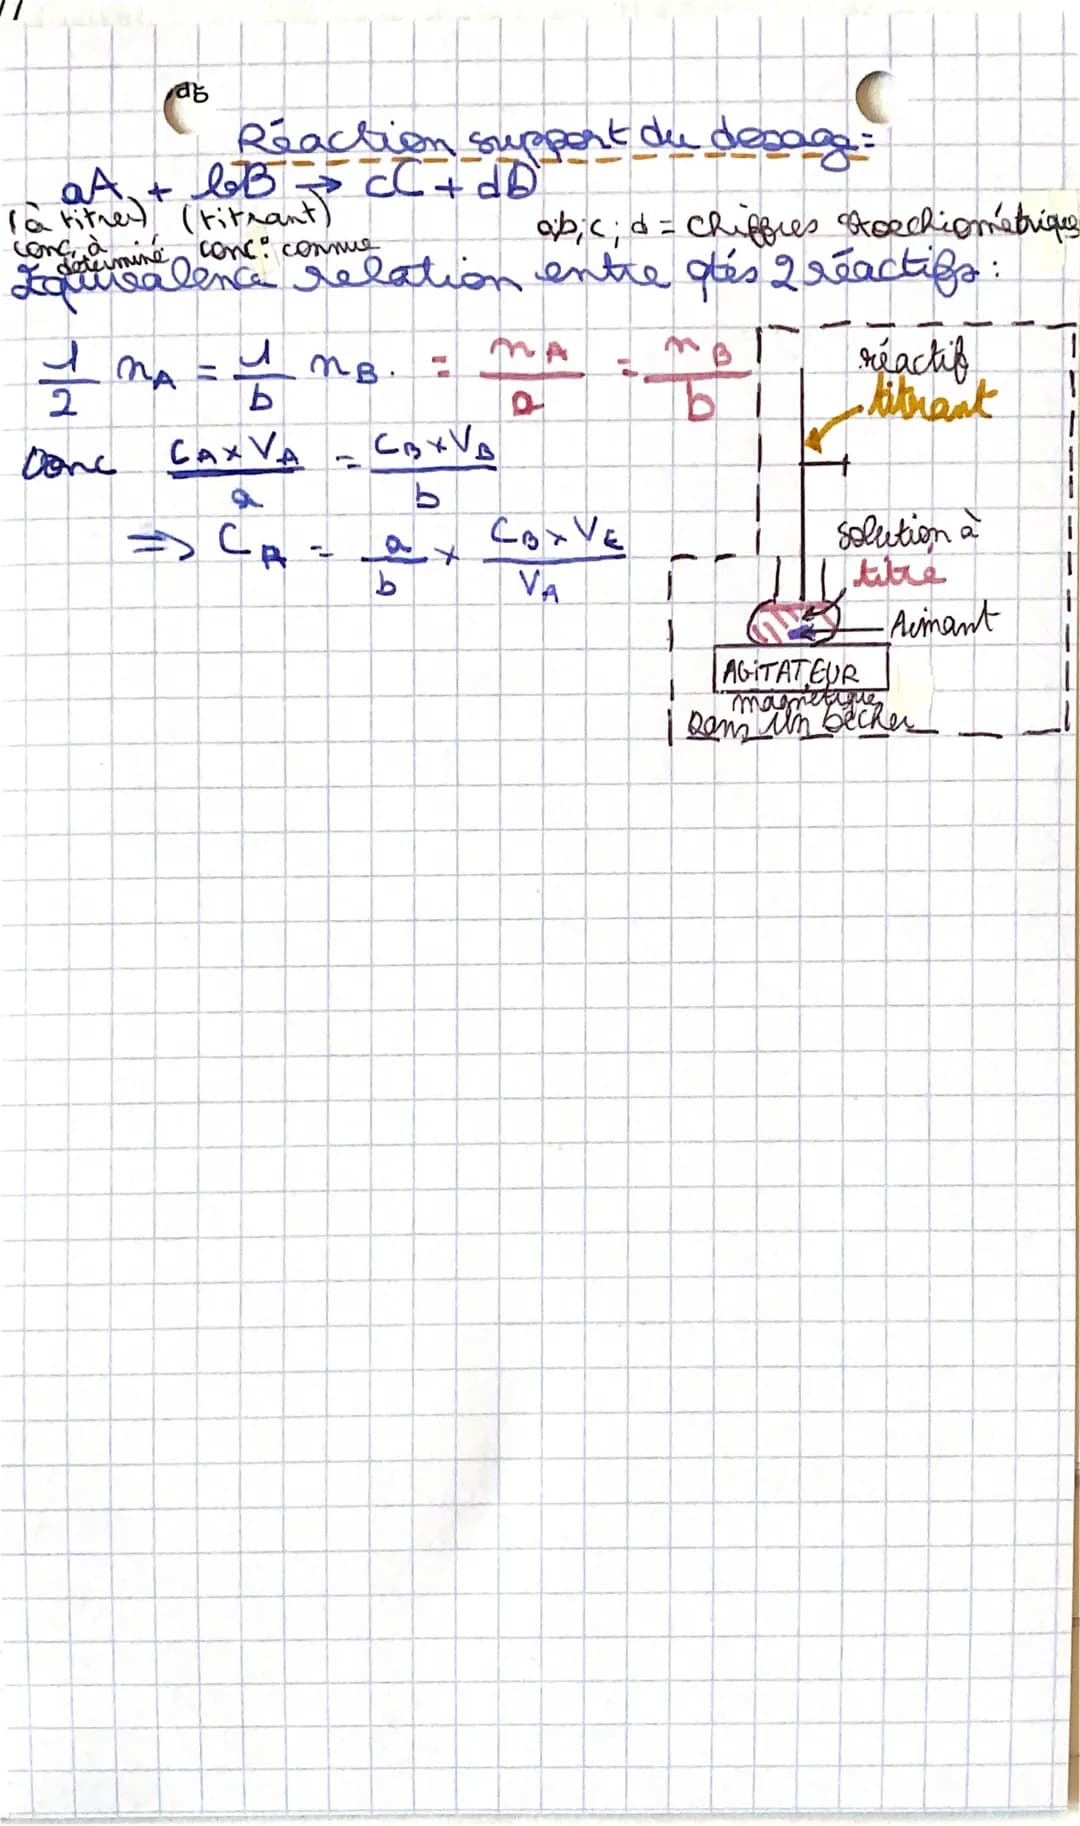 Réaction support du dosage:
aA + bB → cC + dD
(à titrer) (titrant)
conc. à déterminé conc: connue
a;b;c; d = chiffres stoechiométriques
Equivalence relation entre qtés 2 réactifs:
1/2 nA = 1/b nB. = nA/a = nB/b
Donc CA×VA/a = CB×VB/b
=> CA = a/b × CB×VE/VA
réactif
titrant
solution à
titré
Aimant
AGITATEUR
magnétique
Dans un bécher